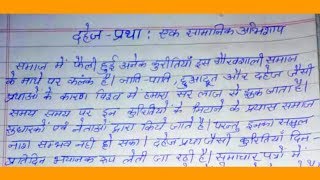 दहेज-प्रथा: एक सामाजिक अभिशाप
समाज में फैली हुई अनेक कुरीतियाँ इस गौरवशाली समाज
के माथे पर कलंक हैं। जाति-पाति, छुआछूत और दहेज जैसी
प्रथाओं के कारण विश्व में हमारा सर लाज से झुक जाता है।
समय समय पर इन कुरीतियों को मिटाने के प्रयास समाज
सुधारकों एवं नेताओं द्वारा किये जाते हैं। परन्तु इनका समूल
नाश सम्भव नहीं हो सका। दहेज प्रथा जैसी कुरीतियाँ दिन-
प्रतिदिन भयानक रूप लेती जा रही हैं। समाचार पत्रों में